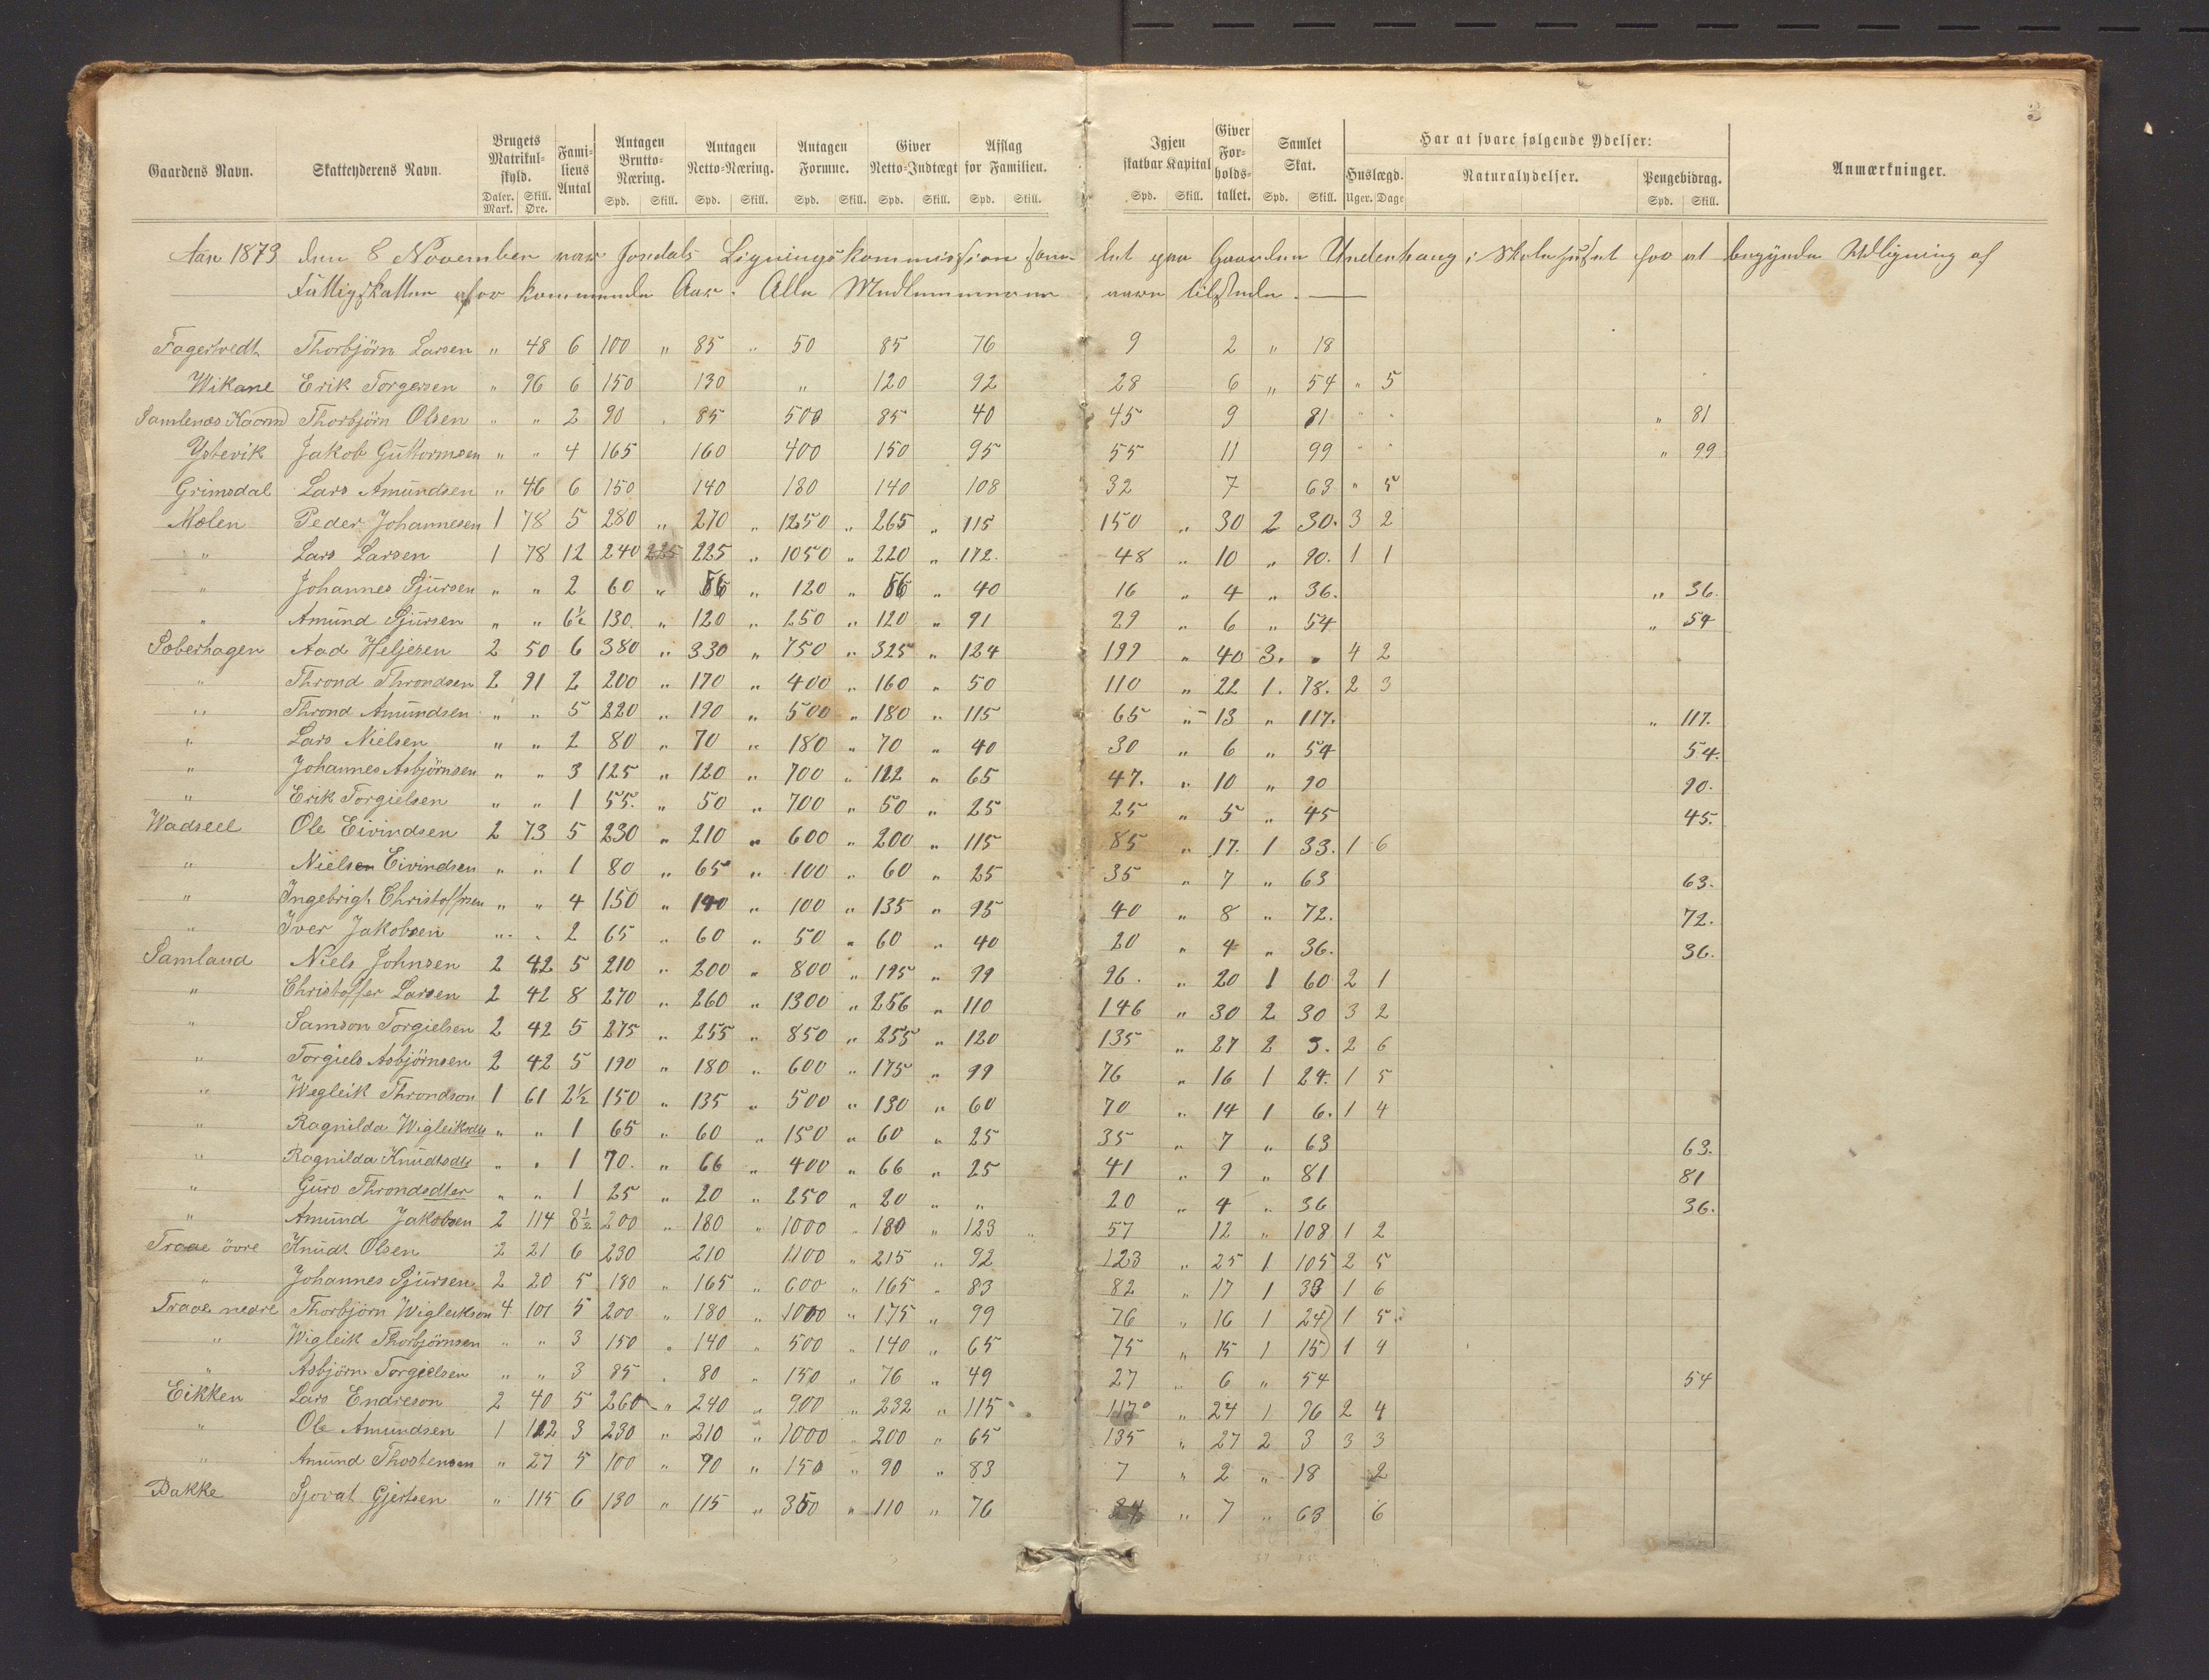 3
Gaardens Navn. Skatteyderens Navn. Brugets Matrikul-skyld. Daler. Mark. Skill. Øre. Fami-liens Antal Antagen Brutto-Næring. Spd. Skill. Antagen Netto-Næring. Spd. Skill. Antagen Formue. Spd. Skill. Giver Netto-Indtægt Spd. Skill. Afslag for Familien. Spd. Skill. Igjen skatbar Kapital Spd. Skill. Giver For-holds-tallet. Samlet Skat. Spd. Skill. Har at svare følgende Ydelser: Huslægd. Uger. Dage Naturalydelser. Pengebidrag. Spd. Skill. Anmærkninger.
Aar 1873 den 8 November var Jondals Ligningskommission sam- let paa Gaarden Underhaug i Skolehuset for at begynde Udligning af
Fattigskatten for kommende Aar. Alle Medlemmerne vare tilstede.
Fagertvedt Thorbjörn Larsen " 48 6 100 " 85 " 50 85 76 9 2 " 18
Wikane Erik Torgersen " 96 6 150 130 " 120 92 28 6 " 54 " 5
Samlenæs Kaarvid Thorbjörn Olsen " " 2 90 " 85 500 85 40 45 9 81 " " " 81
Ystevik Jakob Guttormsen " " 4 165 160 400 150 95 55 11 99 " " " 99
Grimsdal Lars Amundsen " 46 6 150 140 180 140 108 32 7 63 " 5
Molen Peder Johannesen 1 78 5 280 " 270 " 1250 " 265 " 115 150 " 30 2 30. 3 2
" Lars Larsen 1 78 12 240 225 225 " 1050 " 220 " 172. 48 " 10 " 90. 1 1
" Johannes Sjursen " " 2 60 " 56 " 120 " 56 " 40 16 " 4 " 36. " 36.
" Amund Sjursen " " 6½ 130. " 120 " 250 " 120 " 91 29 " 6 " 54 " 54
Soberhagen Aad Heljesen 2 50 6 380 " 330 " 750 " 325 " 124 199 " 40 3. " 4 2
" Thrond Throndsen 2 91 2 200 " 170 " 400 " 160 " 50 110 " 22 1. 78. 2 3
" Thrond Amundsen " " 5 220 " 190 " 500 " 180 " 115 65 " 13 " 117. " 117.
" Lars Nielsen " " 2 80 " 70 " 180 " 70 " 40 30 " 6 " 54 54.
" Johannes Asbjörnsen " " 3 125 " 120 " 700 " 112 " 65 47. " 10 " 90 90.
" Erik Torgielsen " " 1 55. " 50 " 700 " 50 " 25 25 " 5 " 45 45.
Wadseel Ole Eivindsen 2 73 5 230 " 210 " 600 " 200 " 115 85 " 17. 1 33. 1 6
" Nielsen Eivindsen " " 1 80 " 65 " 100 " 60 " 25 35 " 7 " 63 63.
" Ingebrigt Christoffersen " " 4 150 " 140 " 100 " 135 " 95 40 " 8 " 72. 72.
" Iver Jakobsen " " 2 65 " 60 " 50 " 60 " 40 20 " 4 " 36. 36.
Samland Niels Johnsen 2 42 5 210 " 200 " 800 " 195 " 99 96. " 20 1 60 2 1
" Christoffer Larsen 2 42 8 270 " 260 " 1300 " 256 " 110 146 " 30 2 30 3 2
" Samson Torgielsen 2 42 5 275 " 255 " 850 " 255 " 120 135 " 27 2 3. 2 6
" Torgiels Asbjörnsen 2 42 5 190 " 180 " 600 " 175 " 99 76 " 16 1 24. 1 5
" Wegleik Throndson 1 61 2½ 150 " 135 " 500 " 130 " 60 70 " 14 1 6. 1 4
" Ragnilda Wigleiksdtr " " 1 65 " 60 " 150 " 60 " 25 35 " 7 " 63 63.
" Ragnilda Knudtsdtr " " 1 70. " 66 " 400 " 66 " 25 41 " 9 " 81 81
" Guro Throndsdter " " 1 25 " 20 " 250 " 20 " " 20 " 4 " 36 36.
" Amund Jakobsen 2 114 8½ 200 " 180 " 1000 " 180 " 123 " 57 12 " 108 1 2
Traae övre Knudt Olsen 2 21 6 230 210 1100 " 215 " 92 123 " 25 1 105 2 5
" Johannes Sjursen 2 20 5 180 " 165 " 600 " 165 " 83 82 " 17 1 33 1 6
Traae nedre Thorbjörn Wigleikson 4 101 5 200 " 180 " 1000 " 175 " 99 76 " 16 1 24 1 5
" Wigleik Thorbjörnsen " " 3 150 " 140 " 500 " 140 " 65 75 " 15 1 15 1 4
" Asbjörn Torgielsen " " 3 85 " 80 " 150 " 76 " 49 27 " 6 " 54 54
Eikken Lars Endreson 2 40 5 260 " 240 " 900 " 232 " 115 117 " 24 1 96 2 4
" Ole Amundsen 1 112 3 230 " 210 " 1000 " 200 " 65 135 " 27 2 3 3 3
" Amund Thostensen " 27 5 100 " 90 " 150 " 90 " 83 7 " 2 " 18 2
Bakke Sjovat Gjertsen " 115 6 130 " 115 " 350 " 110 " 76 34 " 7 " 63 6